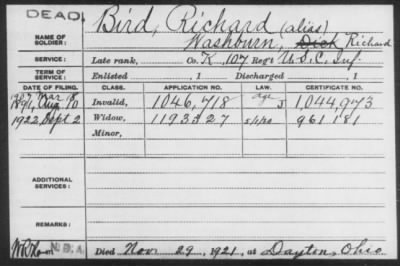 DEAD
Bird, Richard (alias)
NAME OF SOLDIER: Washouen, Dick Richard
SERVICE: Late rank, Co. K, 107 Reg't U.S.C. Inf.
TERM OF SERVICE: Enlisted , 1 Discharged , 1
DATE OF FILING. CLASS. APPLICATION NO. LAW. CERTIFICATE NO.
1891, Aug 10 Invalid, 1046,718 Age J 1,044,973
1922, Sept 2 Widow, 1193527 5/1/20 961181
Minor,
ADDITIONAL SERVICES:
REMARKS:
N.B.A. Died Nov 29, 1921, at Dayton, Ohio